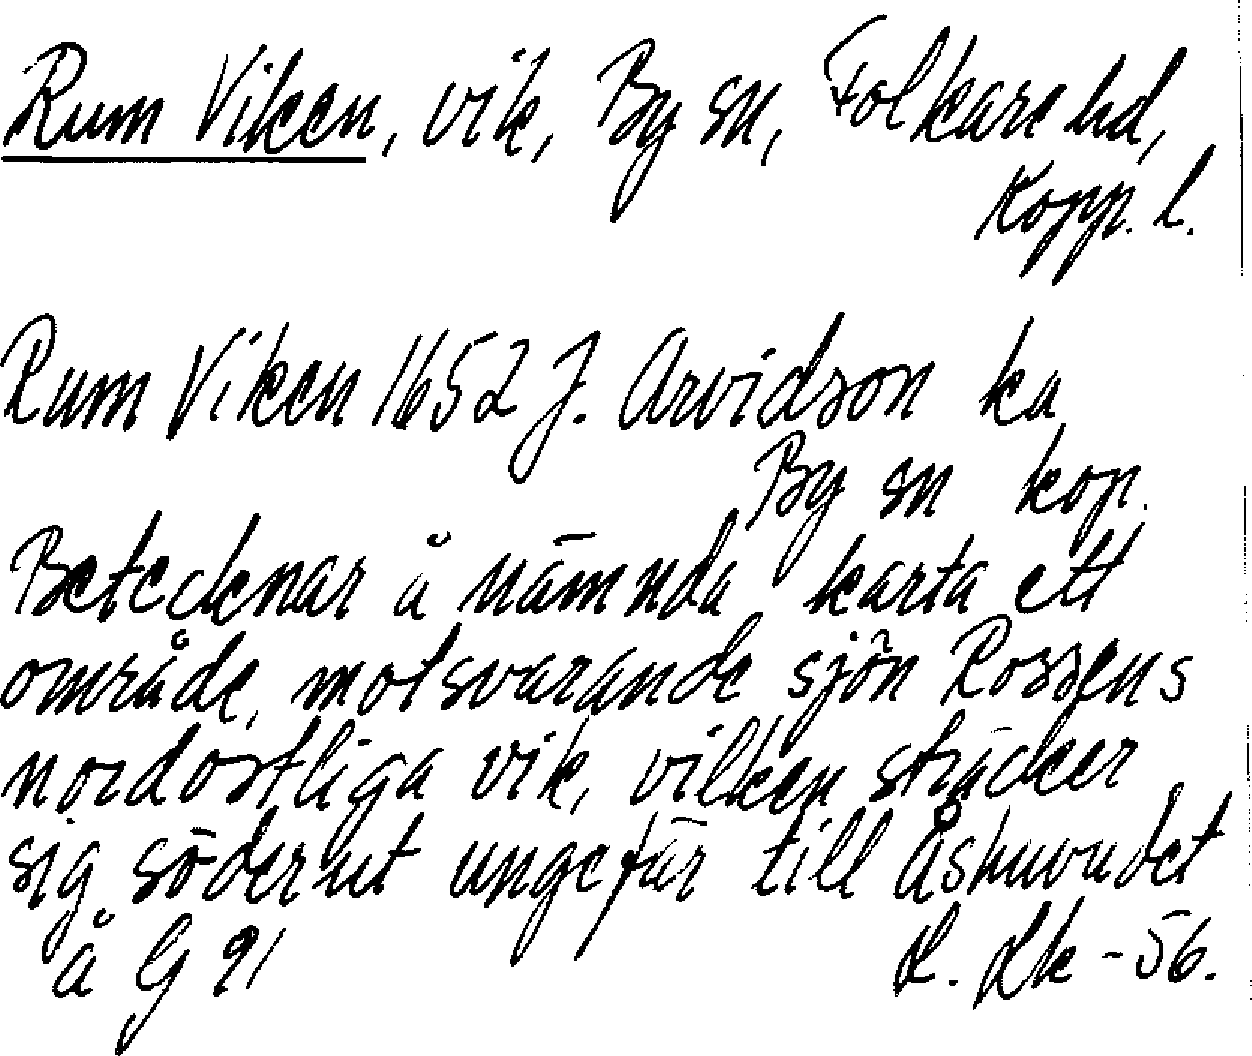 Rum Viken, vik, By sn, Folkare hd,
Kopp. l.
Rum Viken 1652 J. Arvidson ka
By sn kop.
Betecknar å nämnda karta ett
område, motsvarande sjön Rossens
nordostliga vik, vilken sträcker
sig söderut ungefär till Åshuvudet
å G 91
-56.